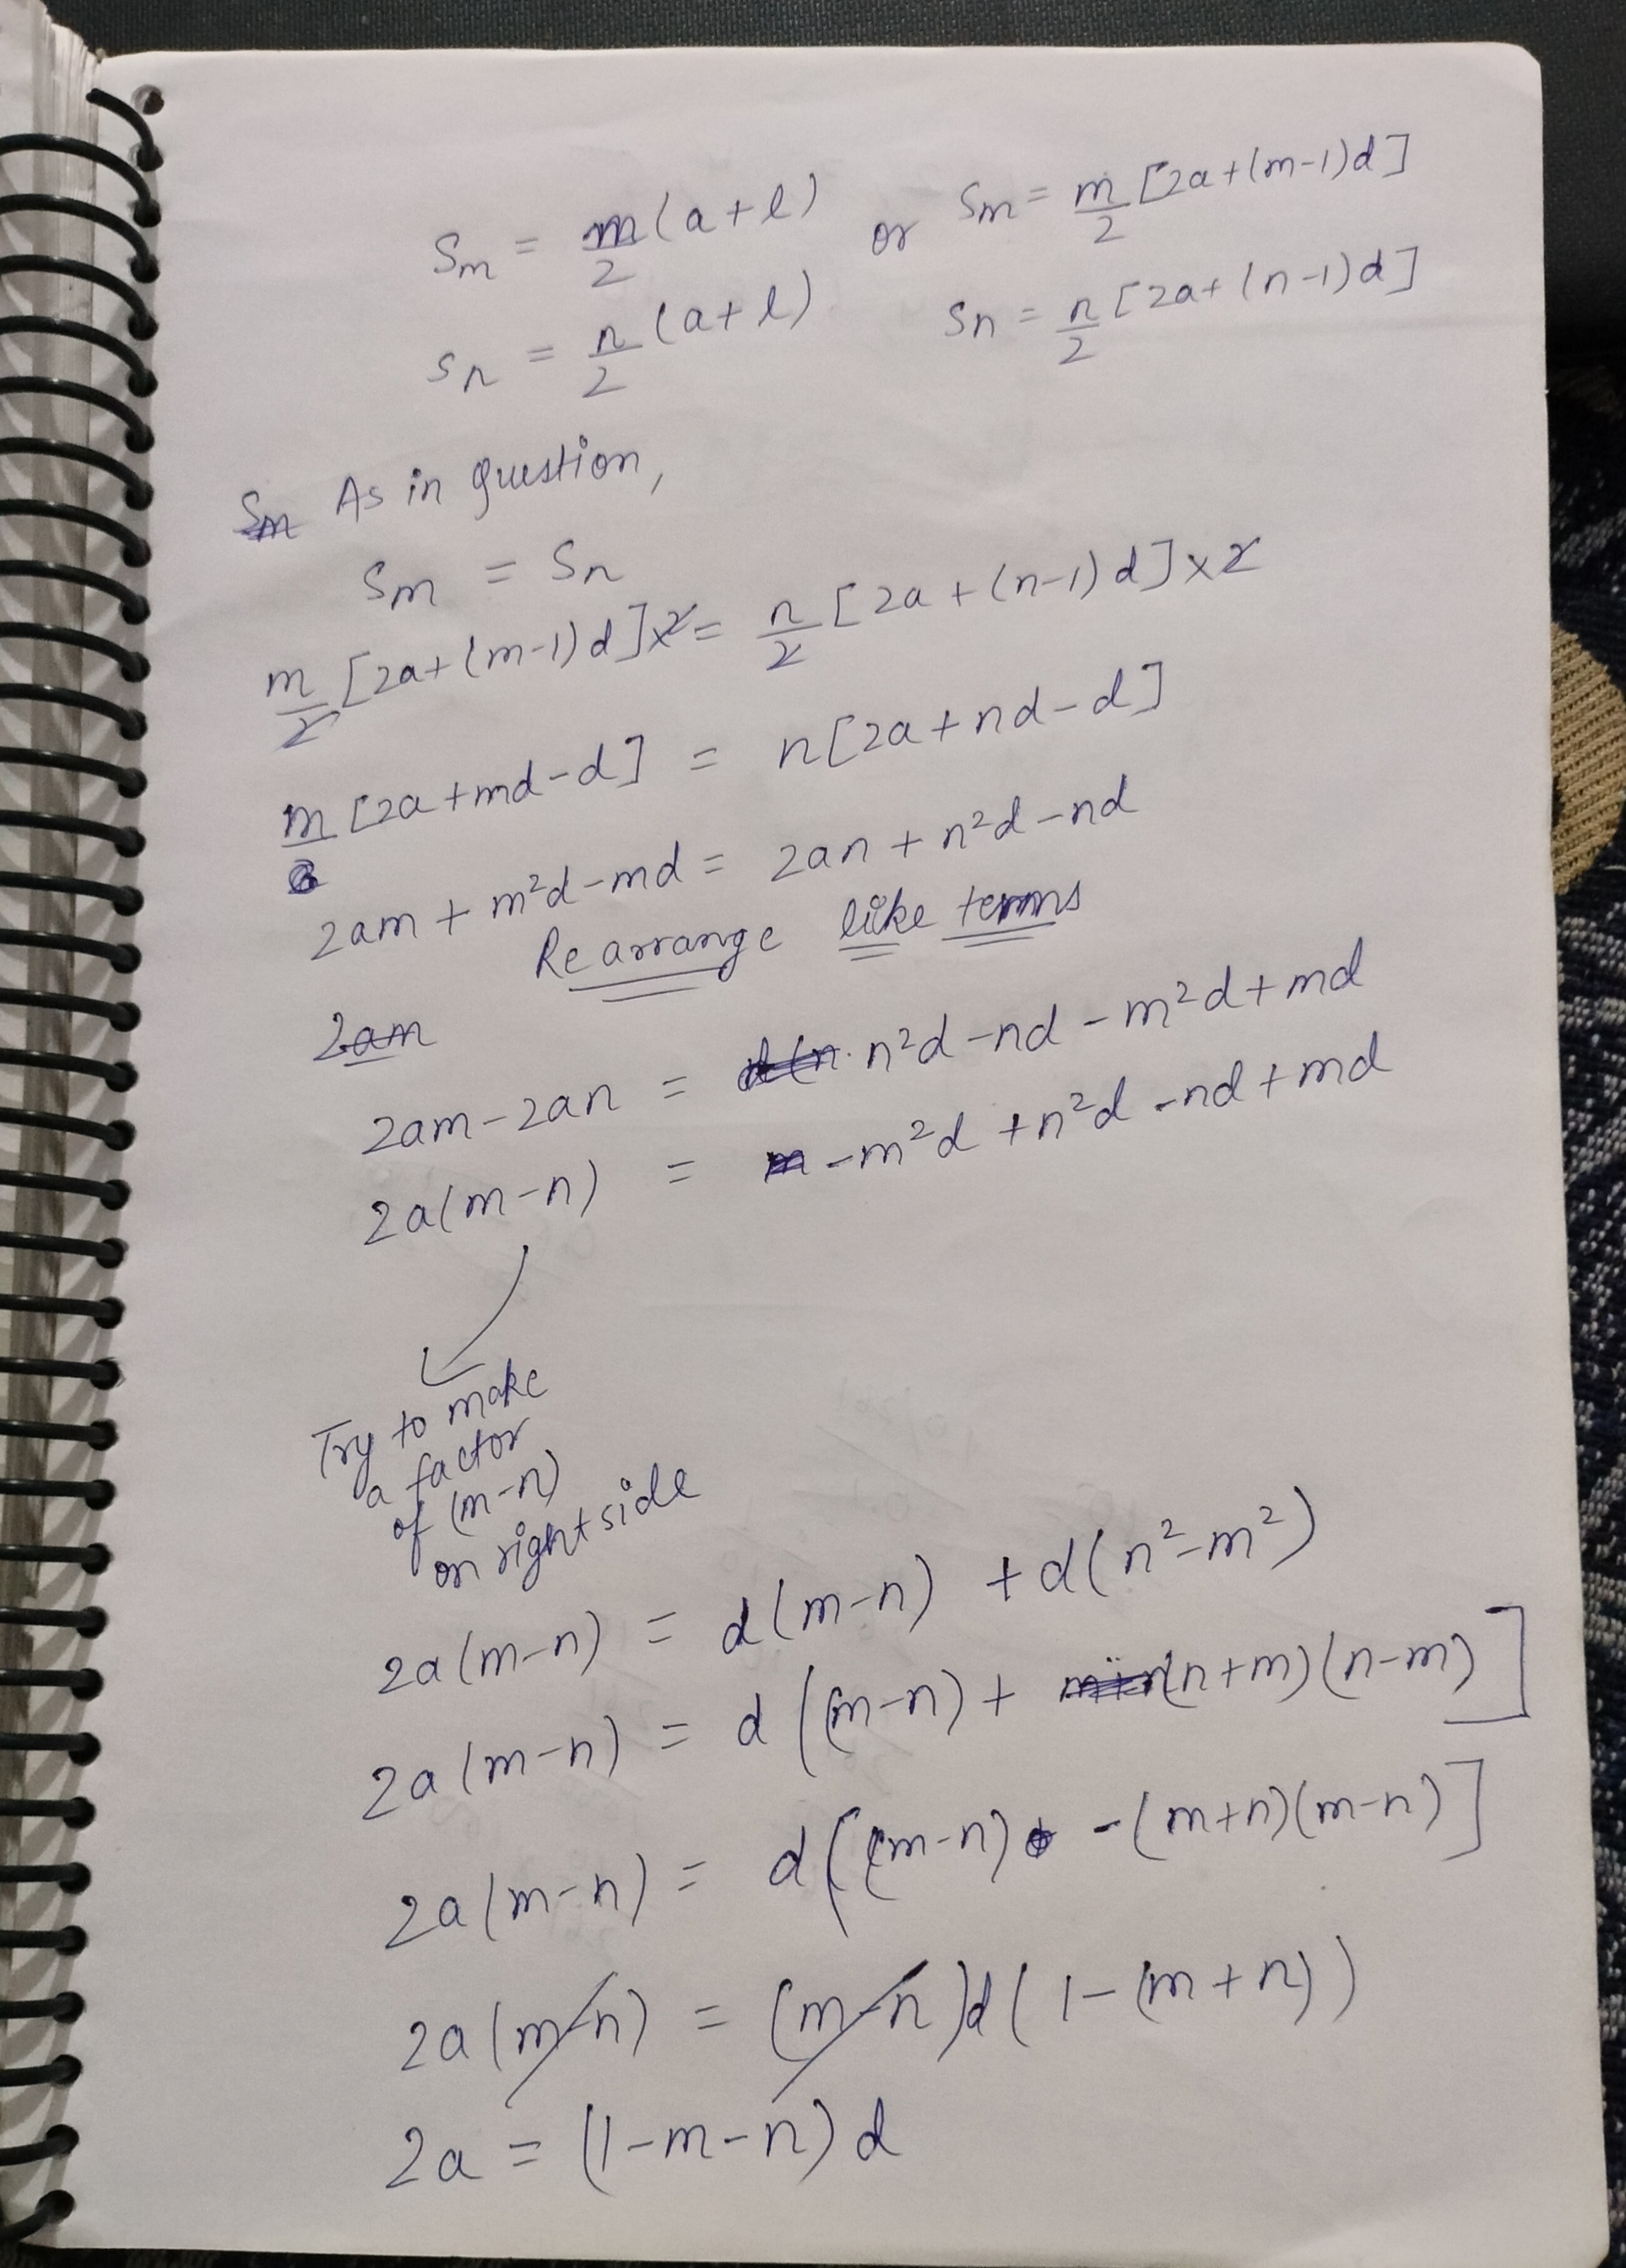 Sm = m/2 (a+l) or Sm = m/2 [2a+(m-1)d]
Sn = n/2 (a+l) Sn = n/2 [2a+(n-1)d]
Sm As in question,
Sm = Sn
m/2 [2a+(m-1)d]x2 = n/2 [2a+(n-1)d]x2
m [2a+md-d] = n[2a+nd-d]
2am + m²d-md = 2an + n²d-nd
Rearrange like terms
2am
2am-2an = n²d-nd-m²d+md
2a(m-n) = -m²d+n²d-nd+md
Try to make
a factor
of (m-n)
on right side
2a(m-n) = d(m-n) +d(n²-m²)
2a(m-n) = d[(m-n)+(n+m)(n-m)]
2a(m-n) = d[(m-n) -(m+n)(m-n)]
2a(m-n) = (m-n)d(1-(m+n))
2a = (1-m-n)d